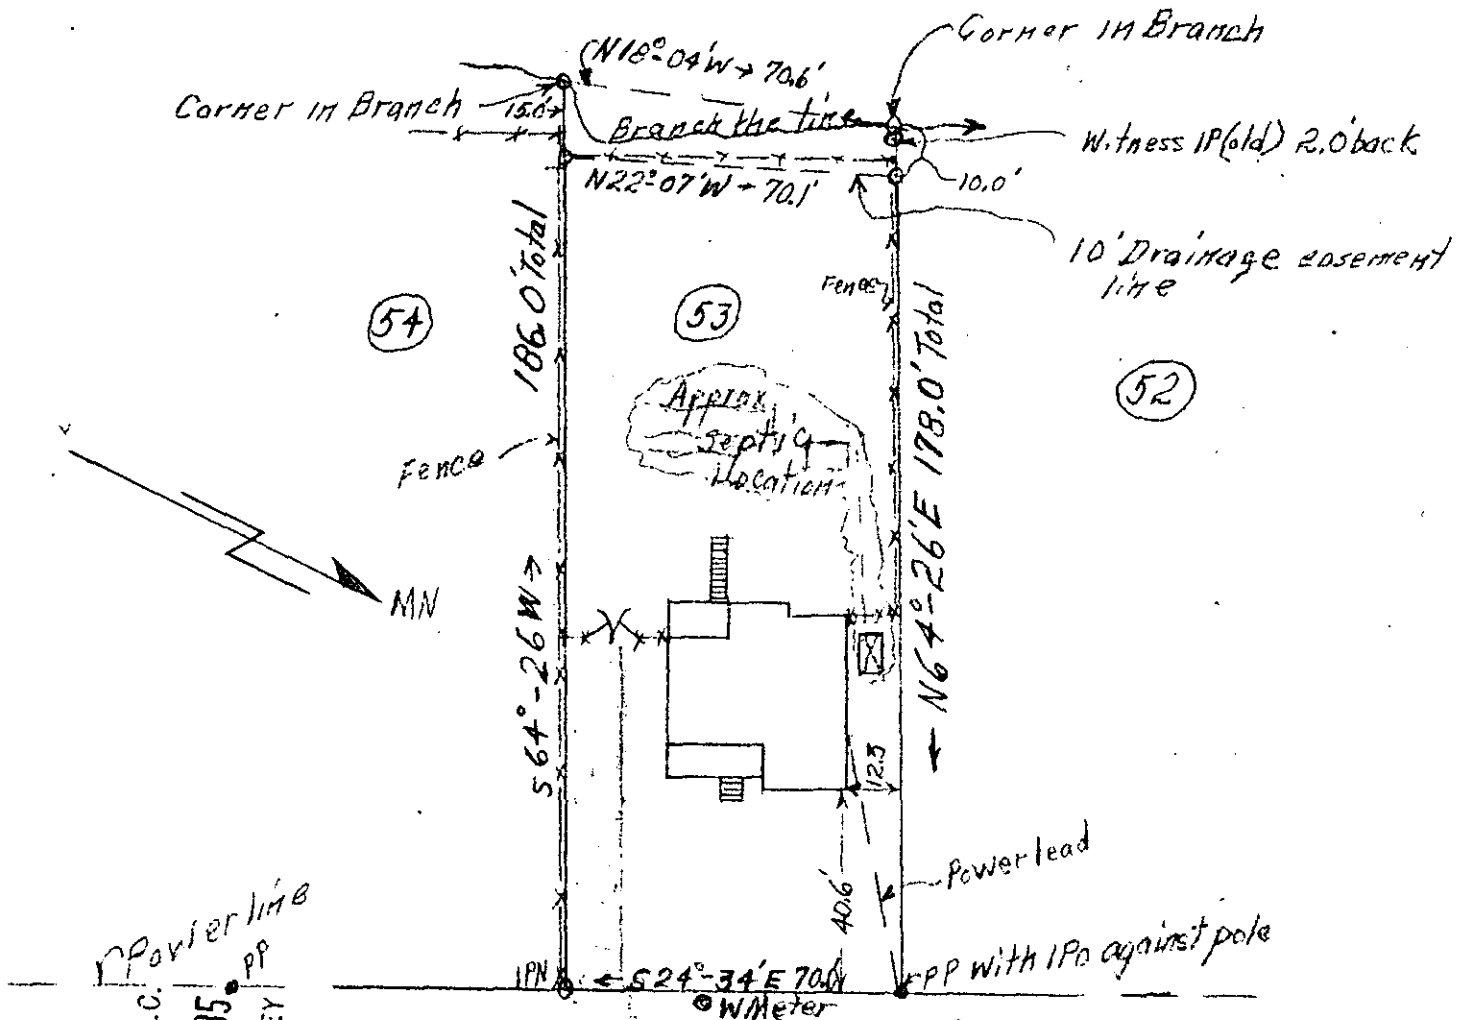 Corner in Branch
N18°-04'W → 70.6'
Corner in Branch
15.0'
Branch the line
Witness IP(old) 2.0' back
N22°-07'W - 70.1'
10.0'
10' Drainage easement
line
Fence
54
53
52
186.0' Total
N64°-26'E 178.0' Total
Approx
Septic
Location
Fence
MN
S64°-26'W →
12.5
Power lead
40.6'
Power line
PP
IPN
← S24°-34'E 70.0'
PP with IPo against pole
W Meter
C.
95
EY